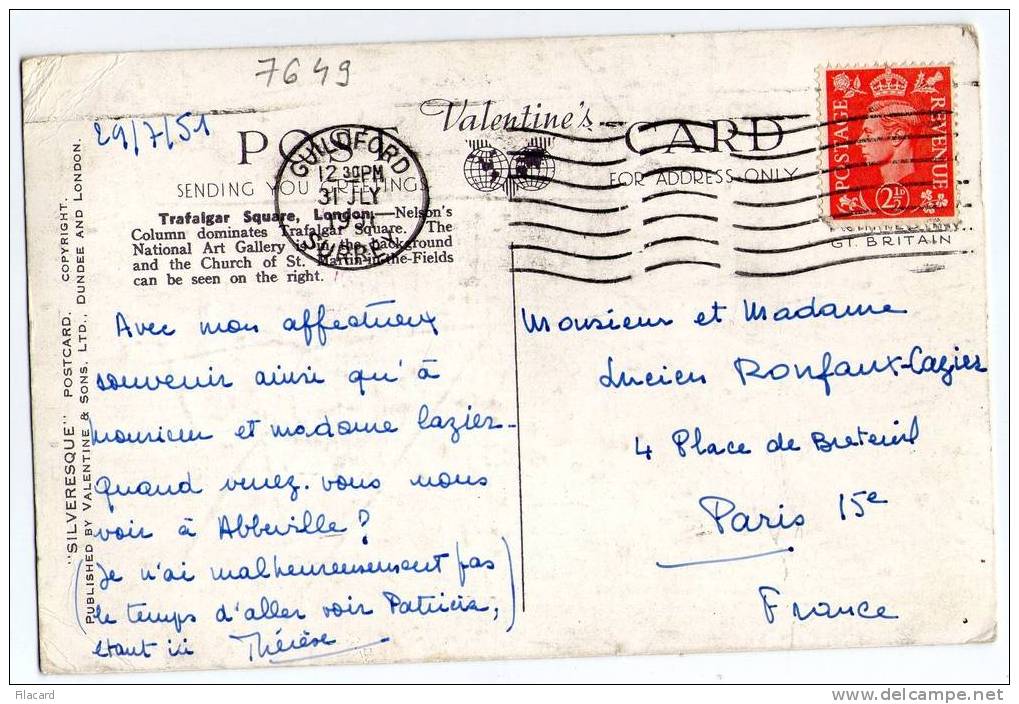 7649
29/7/51
POST
Valentine's
CARD
SENDING YOU GREETINGS
FOR ADDRESS ONLY
GUILDFORD
12 30 PM
31 JLY
1951
SURREY
POSTAGE
REVENUE
2½D
GT. BRITAIN
Trafalgar Square, London.—Nelson's
Column dominates Trafalgar Square. The
National Art Gallery is in the background
and the Church of St. Martin-in-the-Fields
can be seen on the right.
"SILVERESQUE" POSTCARD. COPYRIGHT.
PUBLISHED BY VALENTINE & SONS, LTD., DUNDEE AND LONDON.
Avec mon affectueux
souvenir ainsi qu'à
monsieur et madame Caziez-
quand venez-vous nous
voir à Abbeville?
(Je n'ai malheureusement pas
le temps d'aller voir Patricia,)
étant ici Thérèse
Monsieur et Madame
Lucien Ronfaux-Caziez
4 Place de Breteuil
Paris 15e
France
Filacard
www.delcampe.net